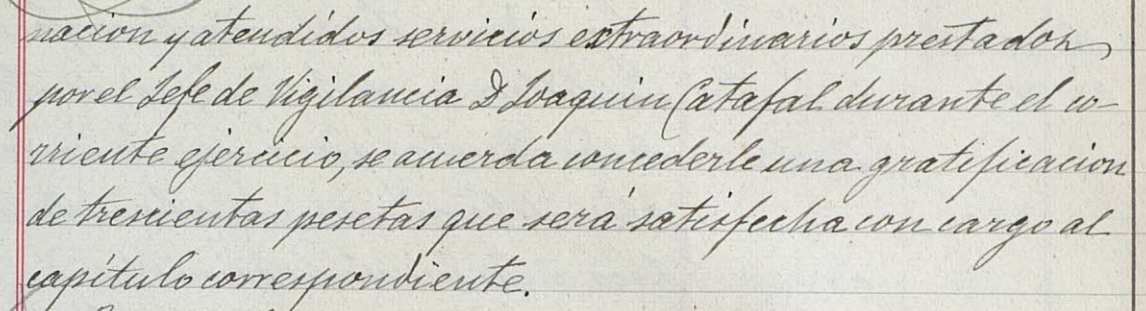 nacion y atendidos servicios extraordinarios prestados
por el Jefe de Vigilancia D Joaquin Catafal durante el co-
rriente ejercicio, se acuerda concederle una gratificacion
de trescientas pesetas que será satisfecha con cargo al
capítulo correspondiente.